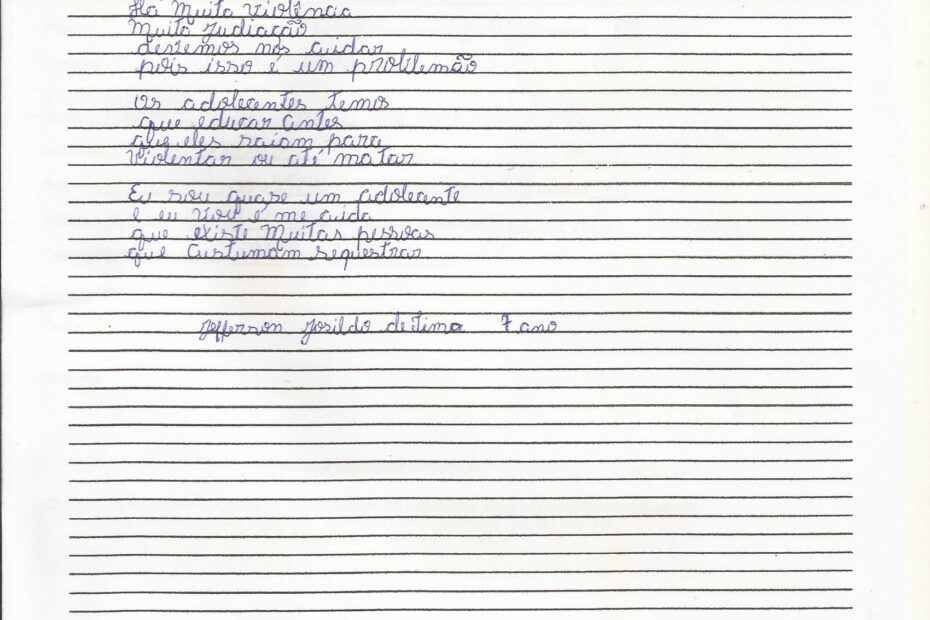 Há Muita violência
Muita Judiação
devemos nos cuidar
pois isso é um problemão
Os adolecentes temos
que educar antes
que eles saiam para
violentar ou até matar
Eu sou quase um adolecente
e eu vou é me cuida
que existe Muitas pessoas
que Custumam sequestrar.
Jefferson Josildo de Lima 7 ano